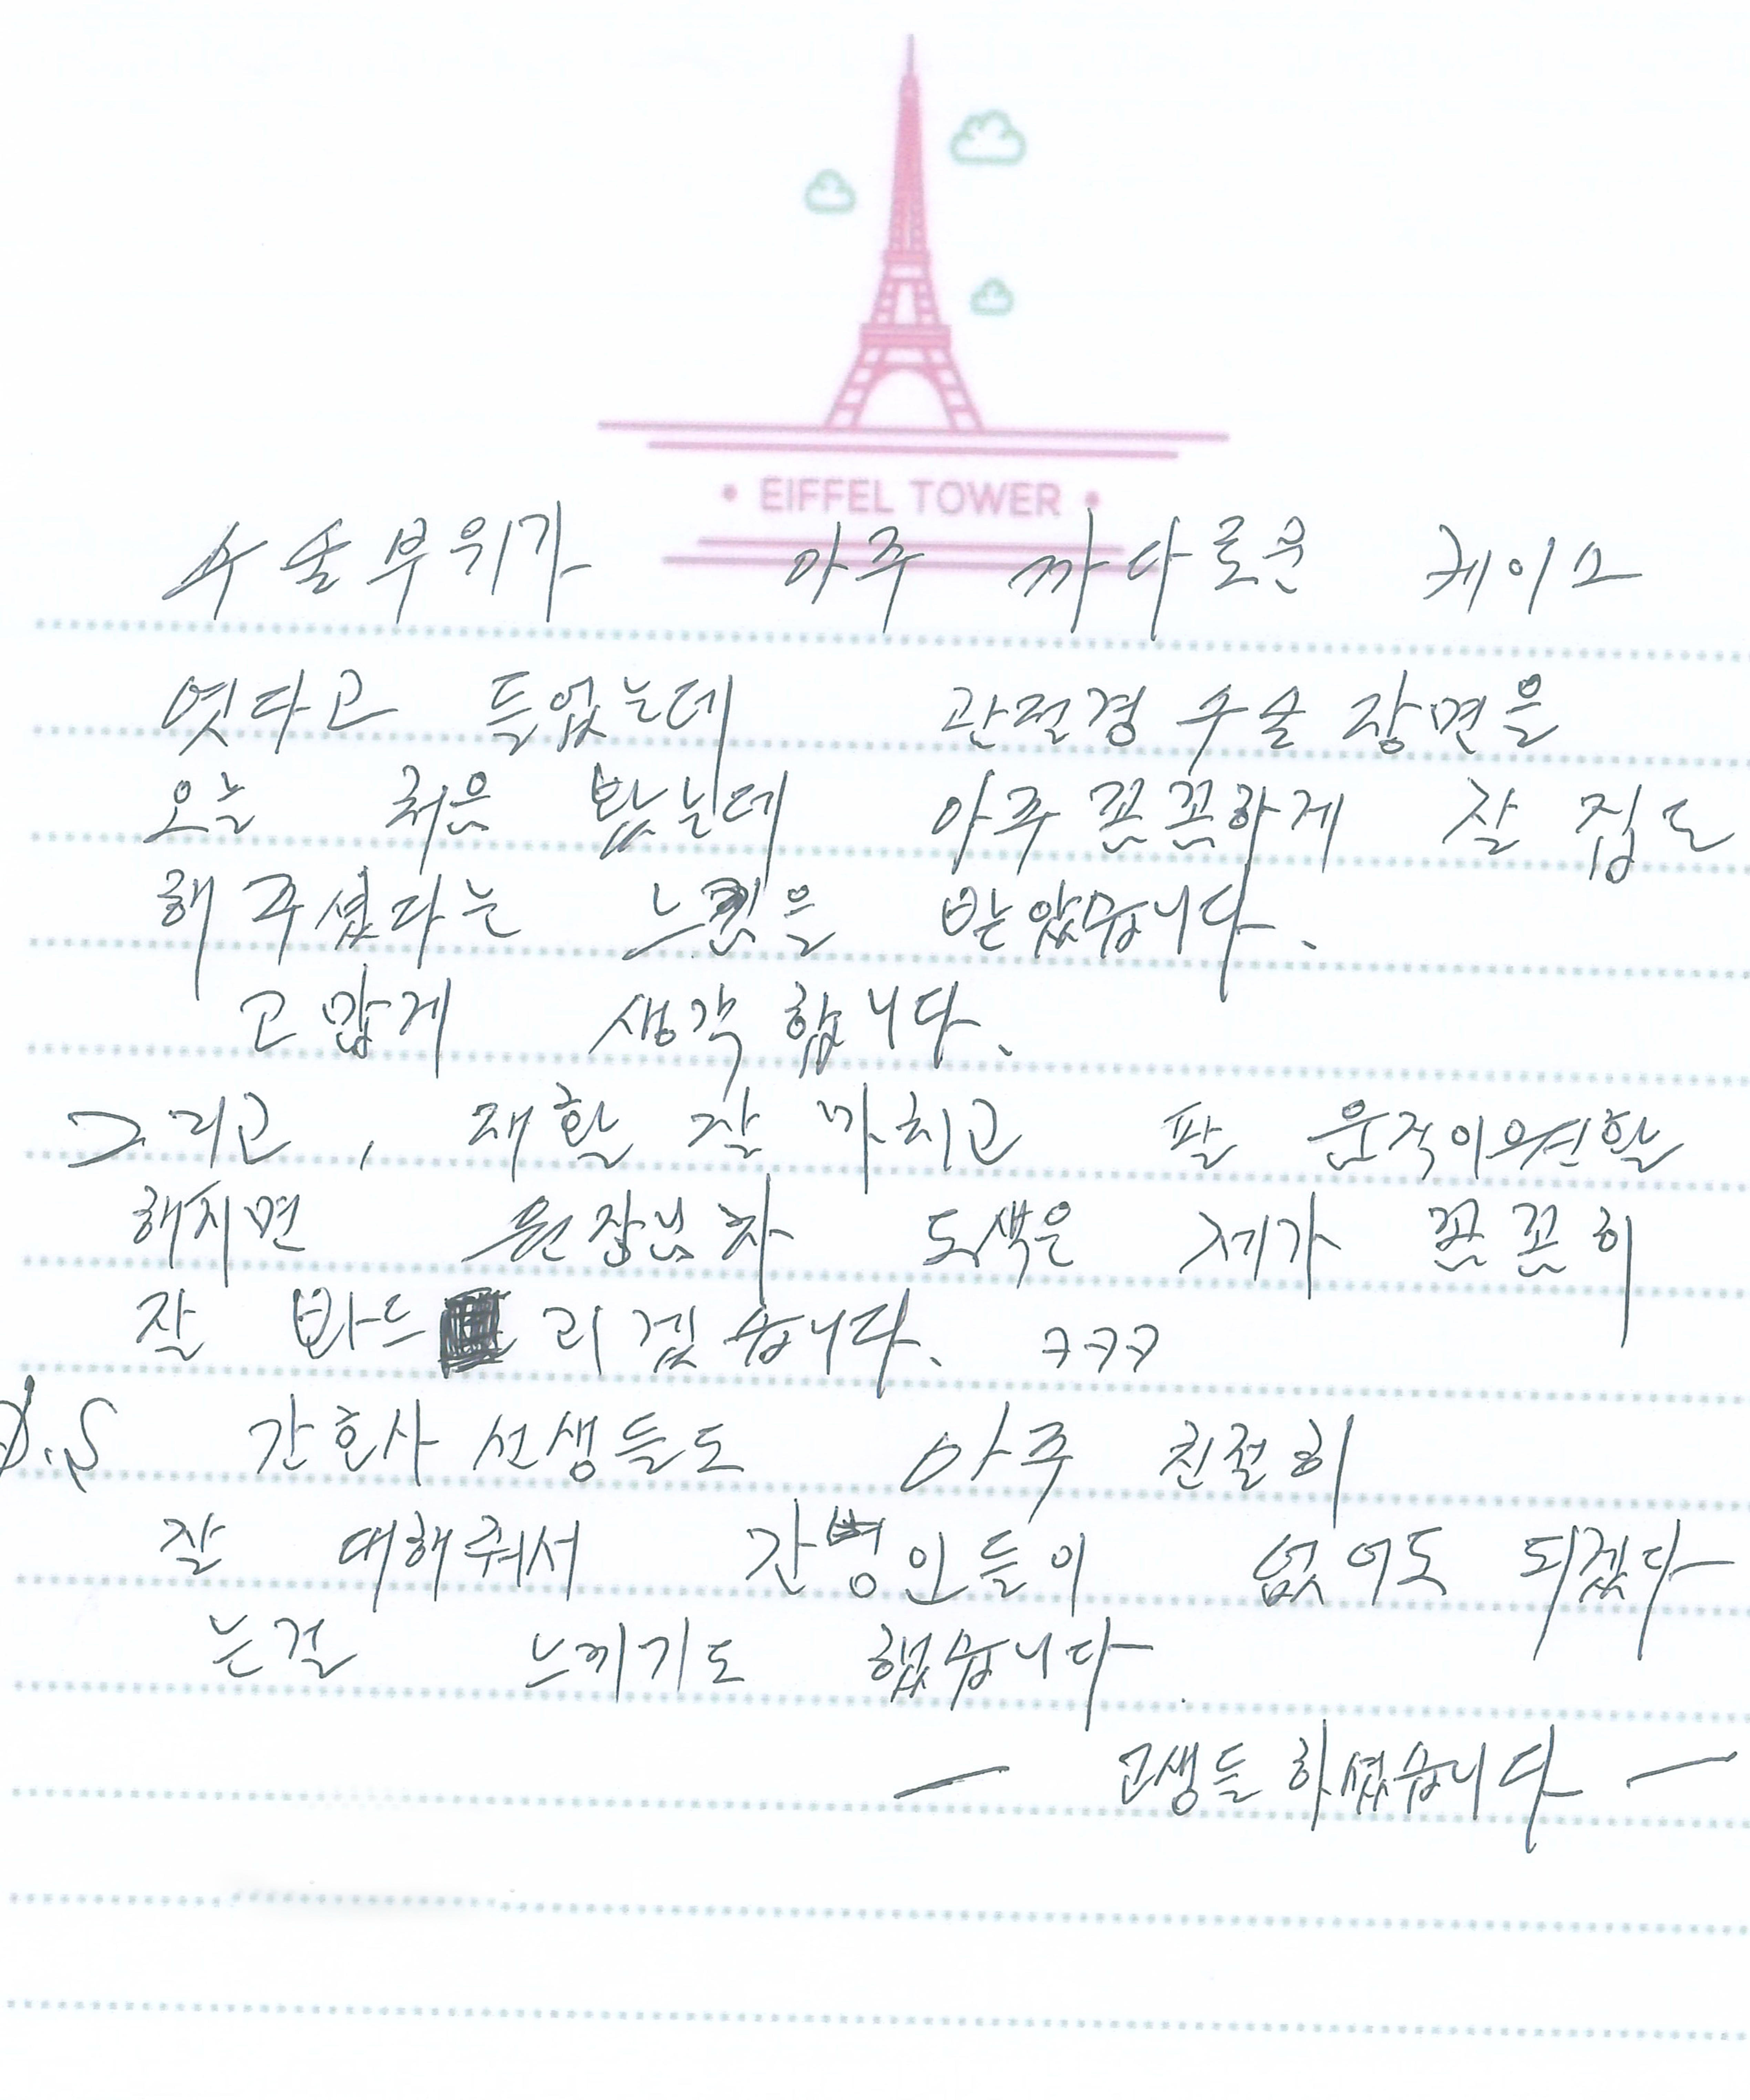 EIFFEL TOWER
수술부위가 아주 까다로운 케이스
엿다고 들었는데 관절경 수술 장면을
오늘 처음 봤는데 아주 꼼꼼하게 잘 집도
해 주셨다는 느낌을 받았습니다.
고맙게 생각 합니다.
그리고, 재활 잘 마치고 팔 움직이 원활
해지면 원장님 차 도색은 제가 꼼꼼히
잘 바드 리겠습니다. ㅋㅋㅋ
P.S 간호사 선생들도 아주 친절히
잘 대해줘서 간병인들이 없어도 되겠다
는걸 느끼기도 했습니다.
― 고생들 하셨습니다 ―